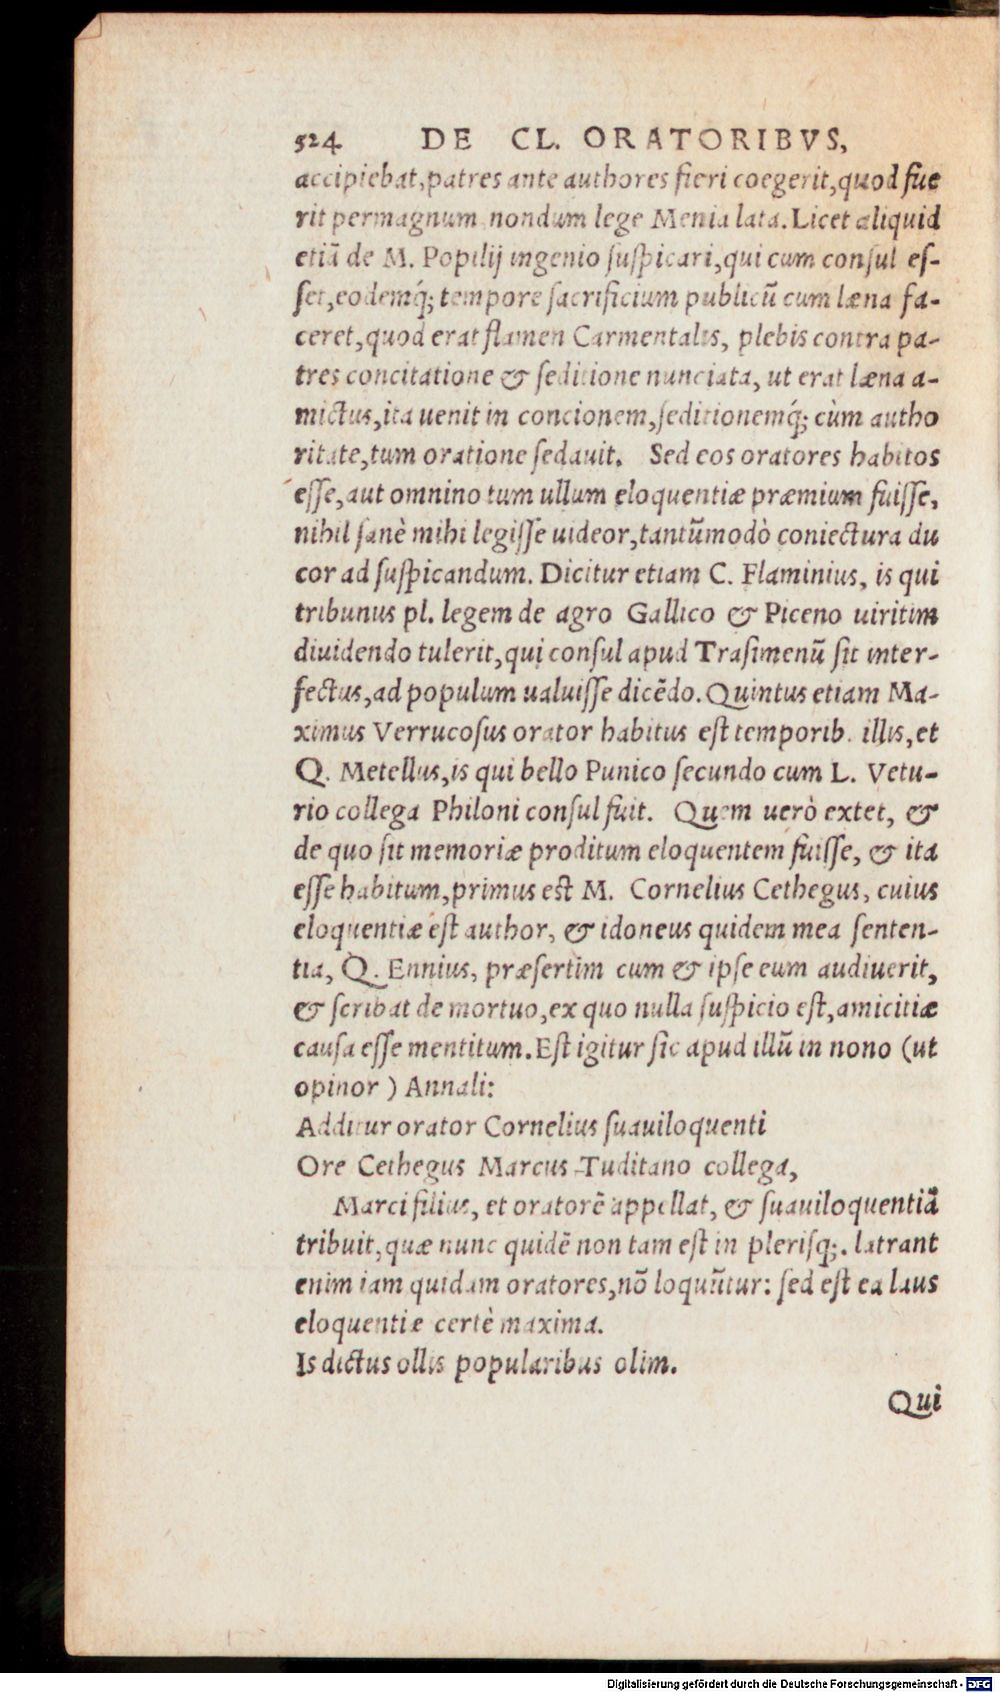 524 DE CL. ORATORIBVS,
accipiebat, patres ante authores fieri coegerit, quod fue
rit permagnum nondum lege Menia lata. Licet aliquid
etiā de M. Popilij ingenio ſuſpicari, qui cum conſul eſ-
ſet, eodemq́; tempore ſacrificium publicū cum læna fa-
ceret, quod erat flamen Carmentalis, plebis contra pa-
tres concitatione & ſeditione nunciata, ut erat læna a-
mictus, ita uenit in concionem, ſeditionemq́; cùm autho
ritate, tum oratione ſedauit. Sed eos oratores habitos
eſſe, aut omnino tum ullum eloquentiæ præmium fuiſſe,
nihil ſanè mihi legiſſe uideor, tantūmodò coniectura du
cor ad ſuſpicandum. Dicitur etiam C. Flaminius, is qui
tribunus pl. legem de agro Gallico & Piceno uiritim
diuidendo tulerit, qui conſul apud Traſimenū ſit inter-
fectus, ad populum ualuiſſe dicēdo. Quintus etiam Ma-
ximus Verrucoſus orator habitus eſt temporib. illis, et
Q. Metellus, is qui bello Punico ſecundo cum L. Vetu-
rio collega Philoni conſul fuit. Quem uerò extet, &
de quo ſit memoriæ proditum eloquentem fuiſſe, & ita
eſſe habitum, primus eſt M. Cornelius Cethegus, cuius
eloquentiæ eſt author, & idoneus quidem mea ſenten-
tia, Q. Ennius, præſertim cum & ipſe eum audiuerit,
& ſcribat de mortuo, ex quo nulla ſuſpicio eſt, amicitiæ
cauſa eſſe mentitum. Eſt igitur ſic apud illū in nono (ut
opinor ) Annali:
Additur orator Cornelius ſuauiloquenti
Ore Cethegus Marcus Tuditano collega,
Marci filius, et oratorē appellat, & ſuauiloquentiā
tribuit, quæ nunc quidē non tam eſt in pleriſq;. latrant
enim iam quidam oratores, nō loquūtur: ſed eſt ea laus
eloquentiæ certè maxima.
Is dictus ollis popularibus olim.
Qui
Digitalisierung gefördert durch die Deutsche Forschungsgemeinschaft - DFG